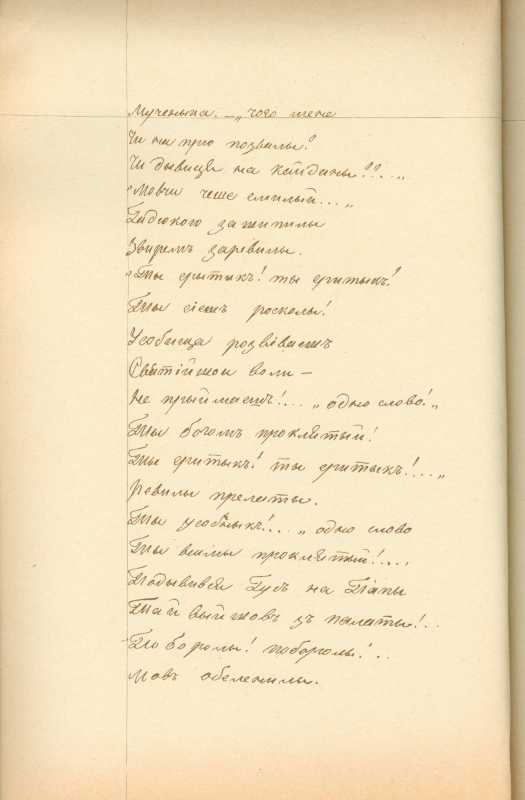 Мученыка. — „ чого мене
Чи на прю позвалы?
Чи дывиця на кайданы??... „
„Мовчи чеше смилый... „
Гадюкою зашипилы
Звиремъ заревилы.
„Ты еритыкъ! ты еритыкъ!
Ты сіешъ росколы!
Усобища розвіваешъ
Свѣтійшои воли —
Не прыймаешъ!... „ одно слово! „
Ты богомъ проклятый!
Ты еритыкъ! ты еритыкъ!... „
Ревилы прелаты.
Ты усобныкъ!... „ одно слово
Ты всимы проклятый!....
Подывився Гусъ на Папы
Тай выйшовъ зъ палаты!..
Поборолы! побороли!..
Мовъ обеленилы.